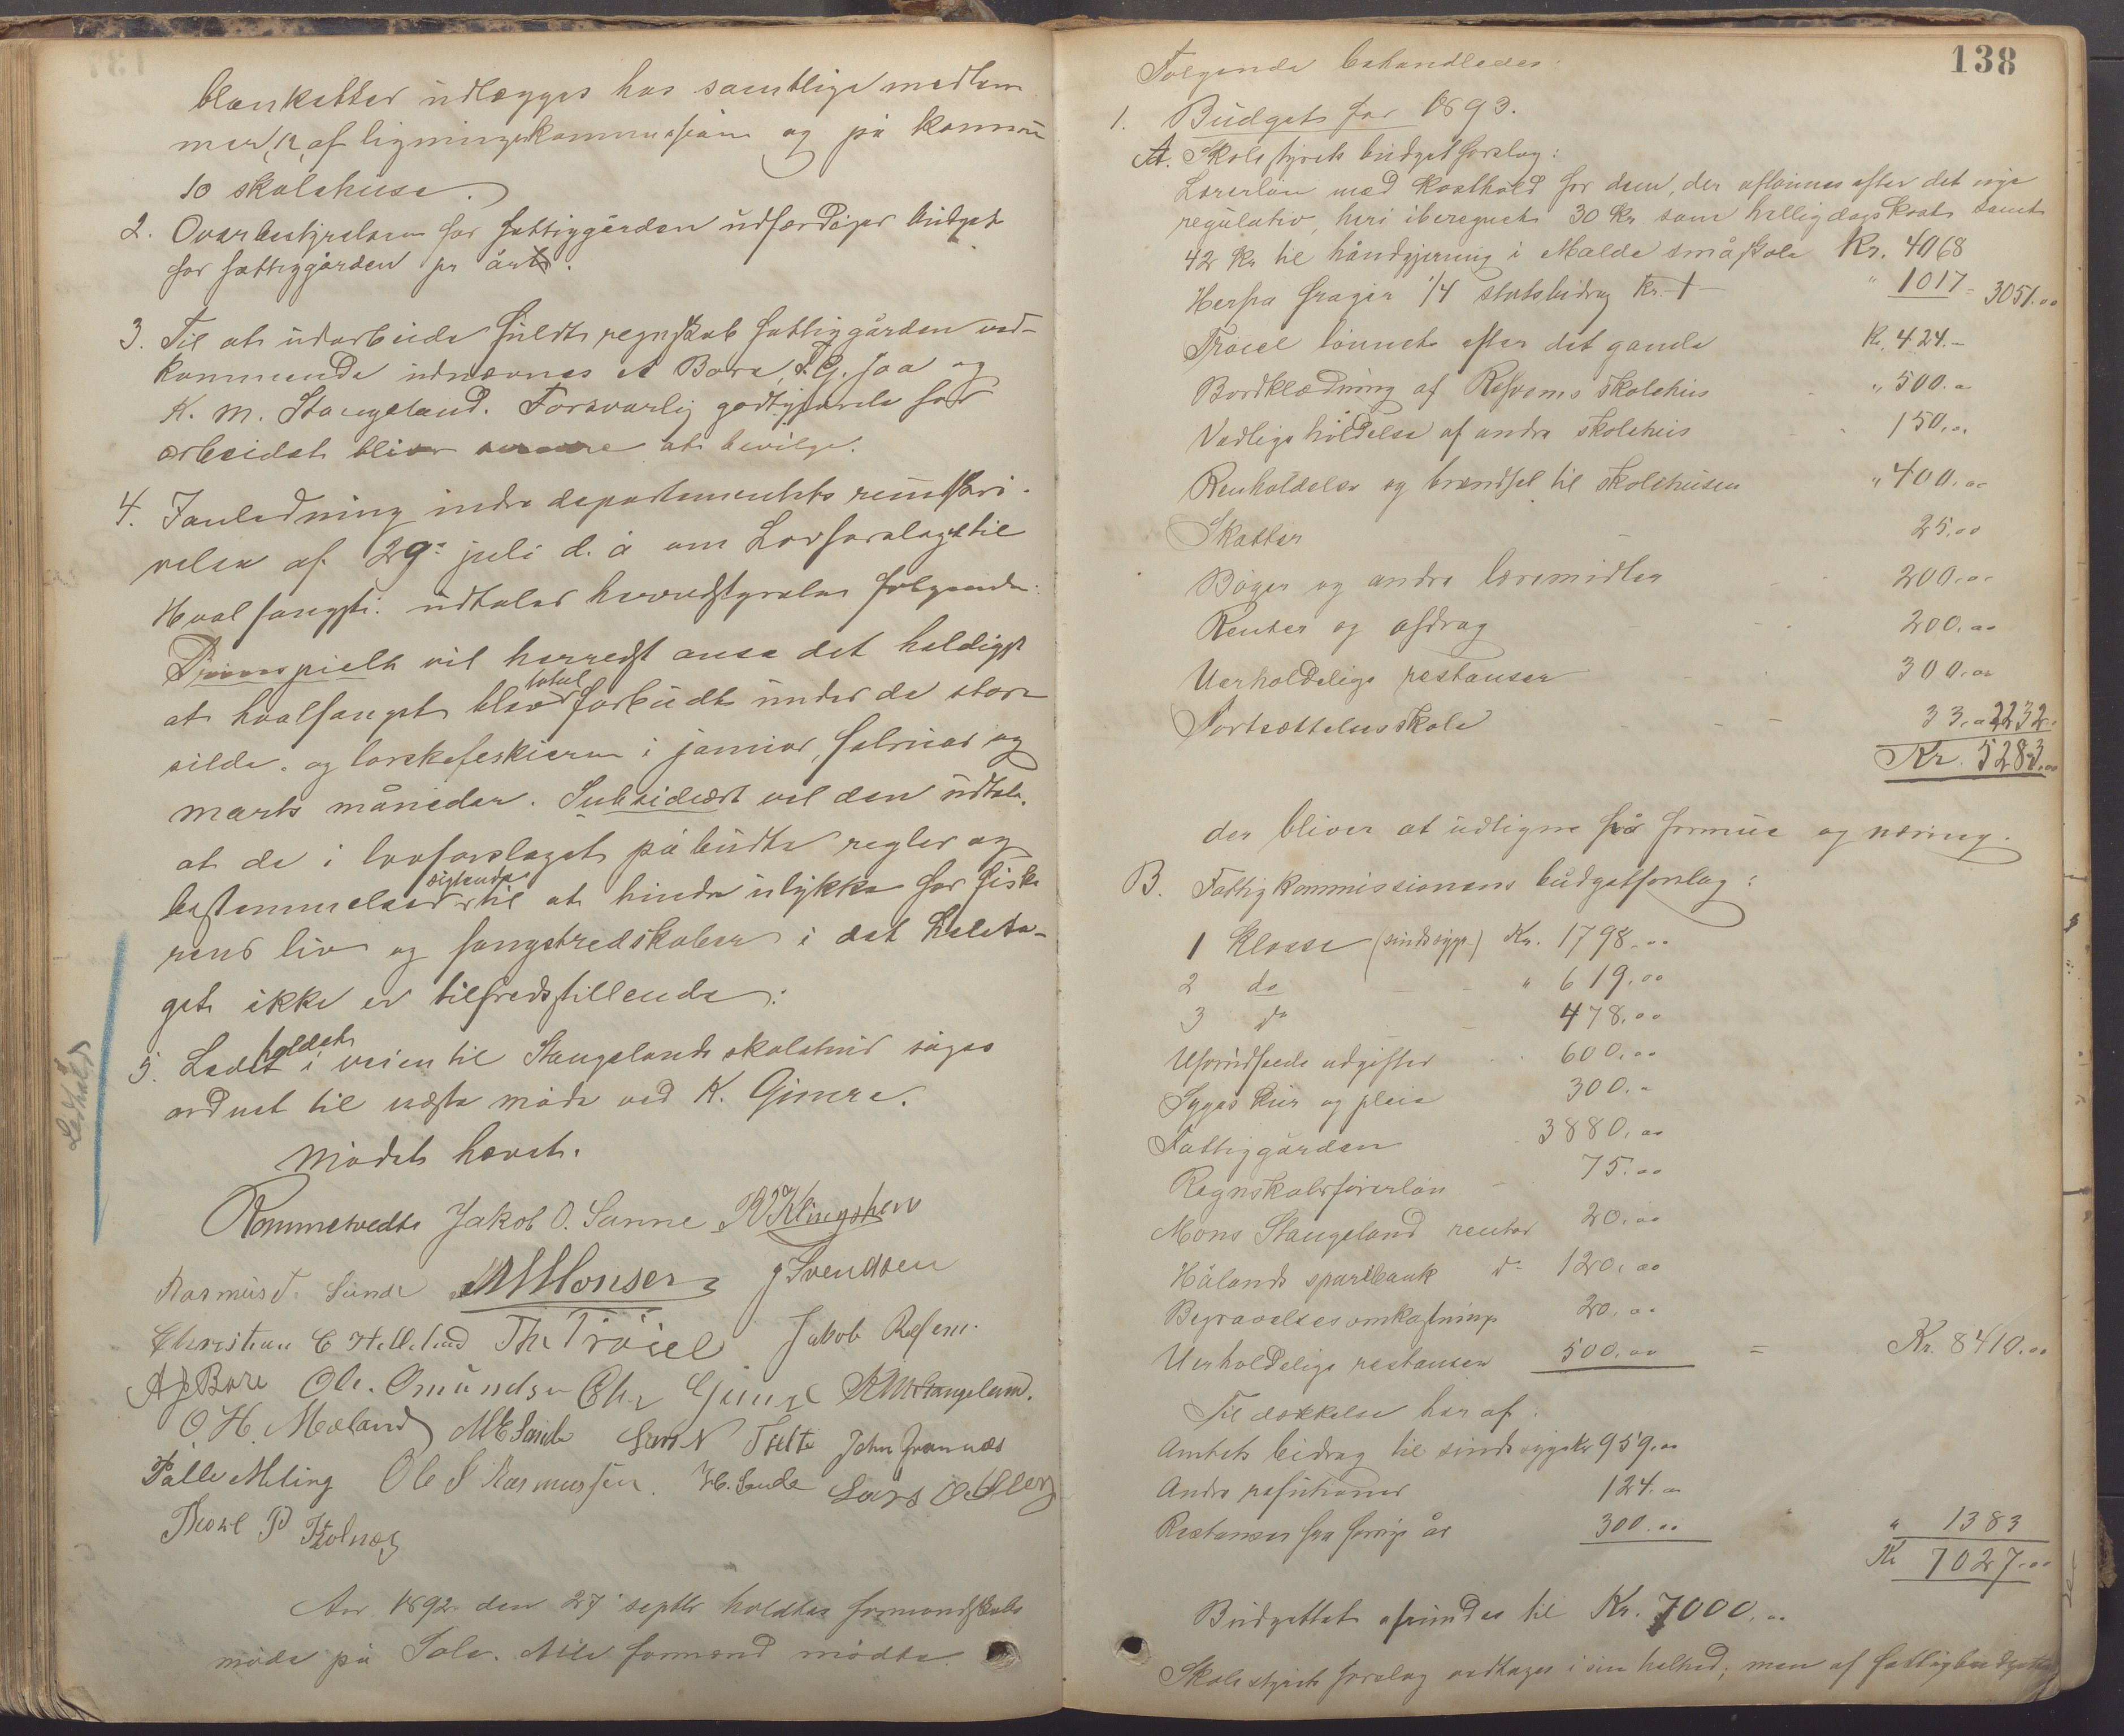 blanketter udlægges hos samtlige medlem
mer, 12, af ligningskommissionen og på kommu
10 skolehuse.
2. Overbestyrelsen for fattiggården udfærdiger budget
for fattiggården pr år.
3. Til at udarbeide fuldt regnskab fattiggården ved-
kommende udnævnes A Bore, og
K. M. Stangeland. Forsvarlig godtgjørelse for
arbeidet bliver senere at bevilge.
4. I anledning indre departementets rundskri-
velse af 29de juli d. å om Lovforslag til
Hvalfangst. udtaler herredstyrelsen følgende:
Principielt vil herredst anse det heldigst
at hvalfangst blev total forbudt under de store
silde- og torskefiskerier i januar, februar og
marts måneder. Subsidiært vil den udtale
at de i lovforslaget påbudte regler og
bestemmelser sigtende til at hindre ulykke for fiske
rens liv og fangstredskaber i det hele ta-
get ikke er tilfredsstillende.
5. Ledet holdet i veien til Stangelands skolehus søges
ordnet til næste møde ved K. Gimre.
Ledhold
Mødet hævet.
Rommetvedt Jakob O. Sanne
Rasmus T. Sunde M Monsen J Svendsen
Christian C Helleland Th Trøiel Jakob Ræfsem.
A J Bore Ole Omundsen Chr Gimre K M Stangeland.
O H. Mæland M E Sande Lars N Tjelta John Grannæs
Palle Meling Ole S Rasmussen. H. Sunde Lars
Thore P Kolnes
Aar 1892 den 27 septbr holdtes formandskabs
møde på Sola. Alle formænd mødte.
138
Følgende behandledes:
1. Budget for 1893.
A. Skolestyrets budgetforslag:
Lærerløn med kosthold for dem, der aflønnes efter det nye
regulativ, heri iberegnet 30 kr som helligdagskost samt
42 kr til håndgjerning i Malde småskole Kr. 4068
Herfra fragår 1/4 statsbidrag Kr. " 1017 - 3051.00
Trøiel lønnet efter det gamle Kr. 424.-
Bordklædning af Ræfsems skolehus " 500.00
Vedligeholdelse af andre skolehus 150.00
Renholdelse og brændsel til skolehusene " 400.00
Skatter 25.00
Bøger og andre læremidler 200.00
Renter og afdrag 200.00
Uerholdelige restanser 300.00
Fortsættelsesskole 33.00 2232.
Kr. 5283.00
der bliver at udligne på formue og næring.
B. Fattigkommissionens budgetforslag:
1 Klasse (sindssyge) Kr. 1798.00
2 do " 619.00
3 do 478.00
Uforudseede udgifter 600.00
Syges kur og pleie 300.-
Fattiggården 3880.00
Regnskabsførerløn 75.00
Mons Stangeland renter 20.00
Hålands sparebank do 120.00
Begravelsesomkostninger 20.00
Uerholdelige restanser 500.00 = Kr. 8410.00
Til dækkelse heraf:
Amtets bidrag til sindssyge Kr 959.00
Andre refusioner 124.00
Restanser fra forrige år 300.00 " 1383
Kr 7027.00
Budgettet afrundes til Kr. 7000.00
Skolestyrets forslag vedtages i sin helhed; men af fattigbudgettet